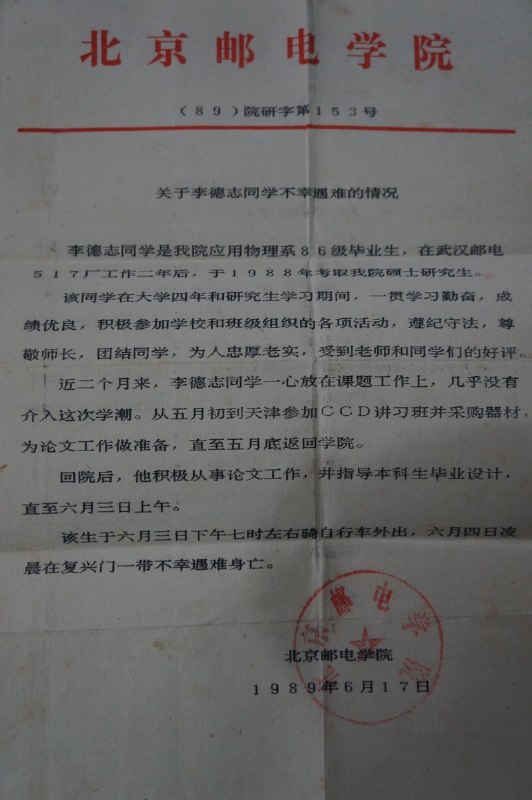 北京邮电学院
（８９）院研字第１５３号
关于李德志同学不幸遇难的情况
李德志同学是我院应用物理系８６级毕业生，在武汉邮电
５１７厂工作二年后，于１９８８年考取我院硕士研究生。
该同学在大学四年和研究生学习期间，一贯学习勤奋，成
绩优良，积极参加学校和班级组织的各项活动，遵纪守法，尊
敬师长，团结同学，为人忠厚老实，受到老师和同学们的好评。
近二个月来，李德志同学一心放在课题工作上，几乎没有
介入这次学潮。从五月初到天津参加ＣＣＤ讲习班并采购器材，
为论文工作做准备，直至五月底返回学院。
回院后，他积极从事论文工作，并指导本科生毕业设计，
直至六月三日上午。
该生于六月三日下午七时左右骑自行车外出，六月四日凌
晨在复兴门一带不幸遇难身亡。
北京邮电学院
北京邮电学院
１９８９年６月１７日